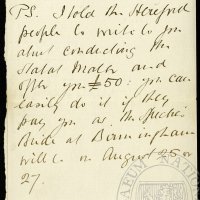 P.S. I told the Hereford
people to write to you
about conducting the
Stabat Mater and
offer you £50: you can
easily do it if they
pay you as the
Bride at Birmingham
will be on August 25 or
27.